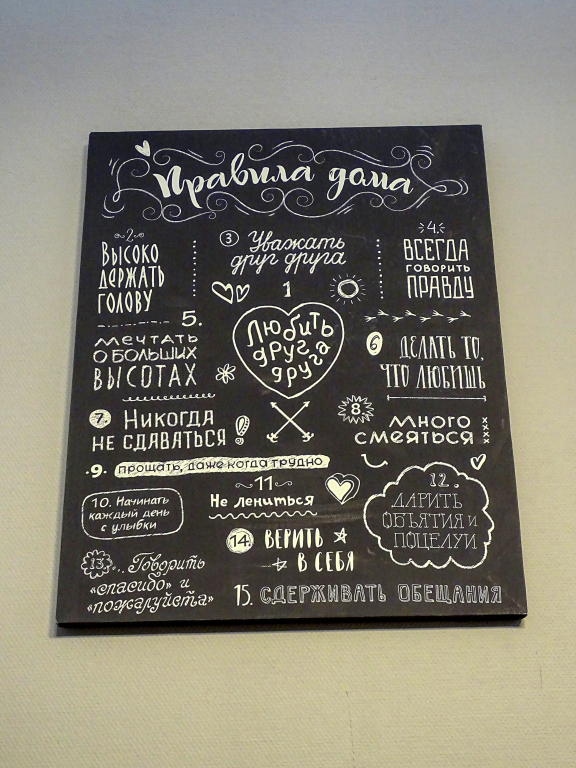 Правила дома
2.
Высоко
держать
голову
3 Уважать
друг друга
4.
Всегда
говорить
правду
1
Любить
друг
друга
5.
Мечтать
о больших
высотах
6 Делать то,
что любишь
7. Никогда
не сдаваться!
8. Много
смеяться
9. прощать, даже когда трудно
10. Начинать
каждый день
с улыбки
11
Не лениться
12.
Дарить
объятия и
поцелуи
13... Говорить
«спасибо» и
«пожалуйста»
14. Верить
в себя
15. Сдерживать обещания